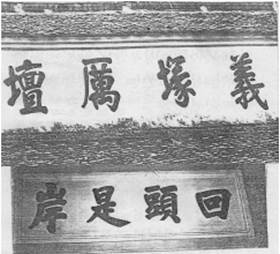 義塚厲壇
回頭是岸